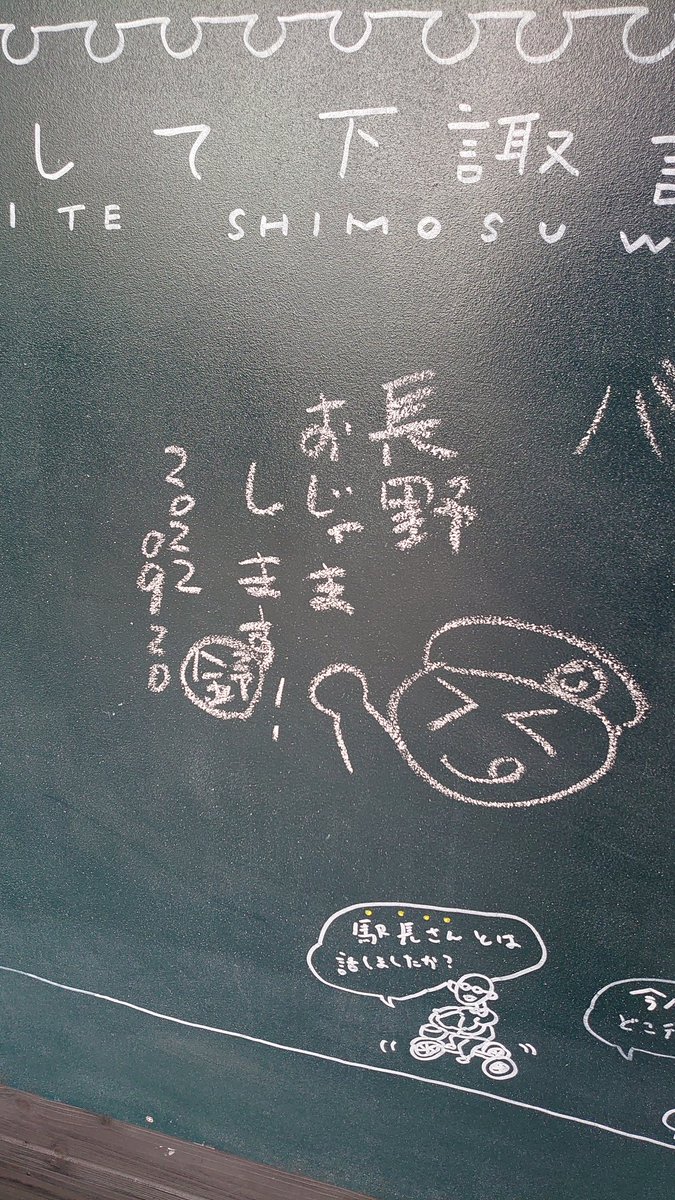 して下諏
ITE SHIMOSUW
長野
おじゃま
します!
2022
0920
駅長さんとは
話しましたか?
どこ